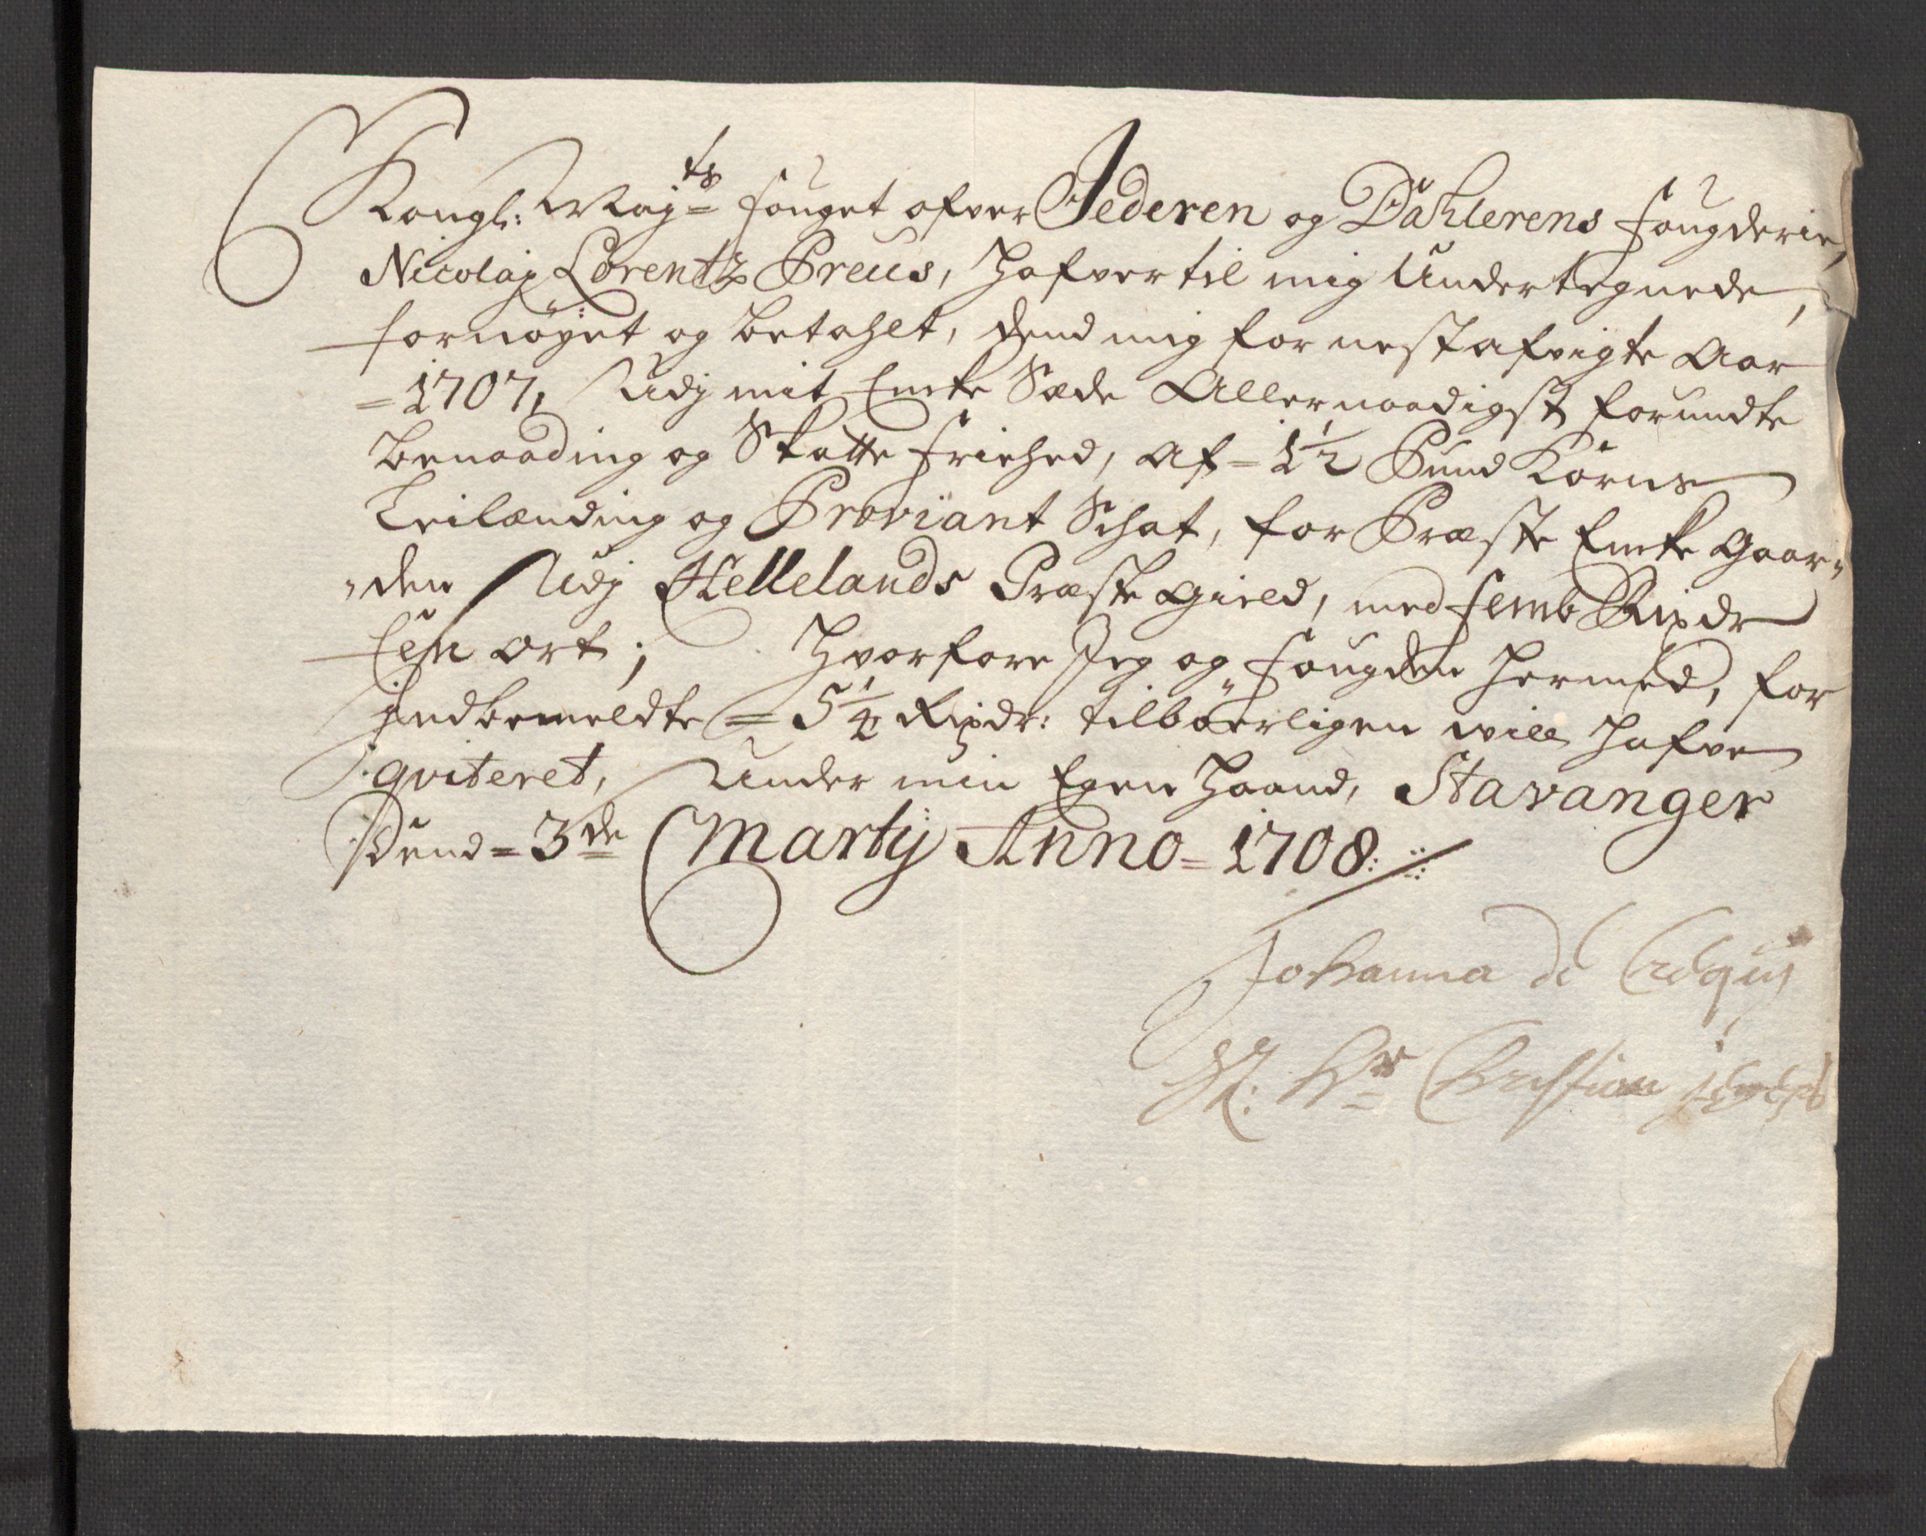 Kongl: Maj^ts fouget ofver Jederen og Dahlerens fougderie,
Nicolaj Lorentz Preus, hafver til mig Undertegnede,
fornöyet og betahlt, dend mig for nestafvigte Aar
=1707, Udj mit Encke Sæde Allernaadigst forundte
benaading og Skatte friehed, af = 1½ Pund Korns
Leilænding og Proviant Schat, for Præste Encke Gaar=
=den Udj Hellelands Præste gield, med femb Rixdr
Een ort; Hvorfore Jeg og fougden hermed, for
Indbemeldte = 5¼ Rixdr: tilbörligen will hafve
qviteret, Under min Egen Haand, Stavanger
Dend = 3^de Martij Anno = 1708:
Johanna de
Sl: Hr Christian